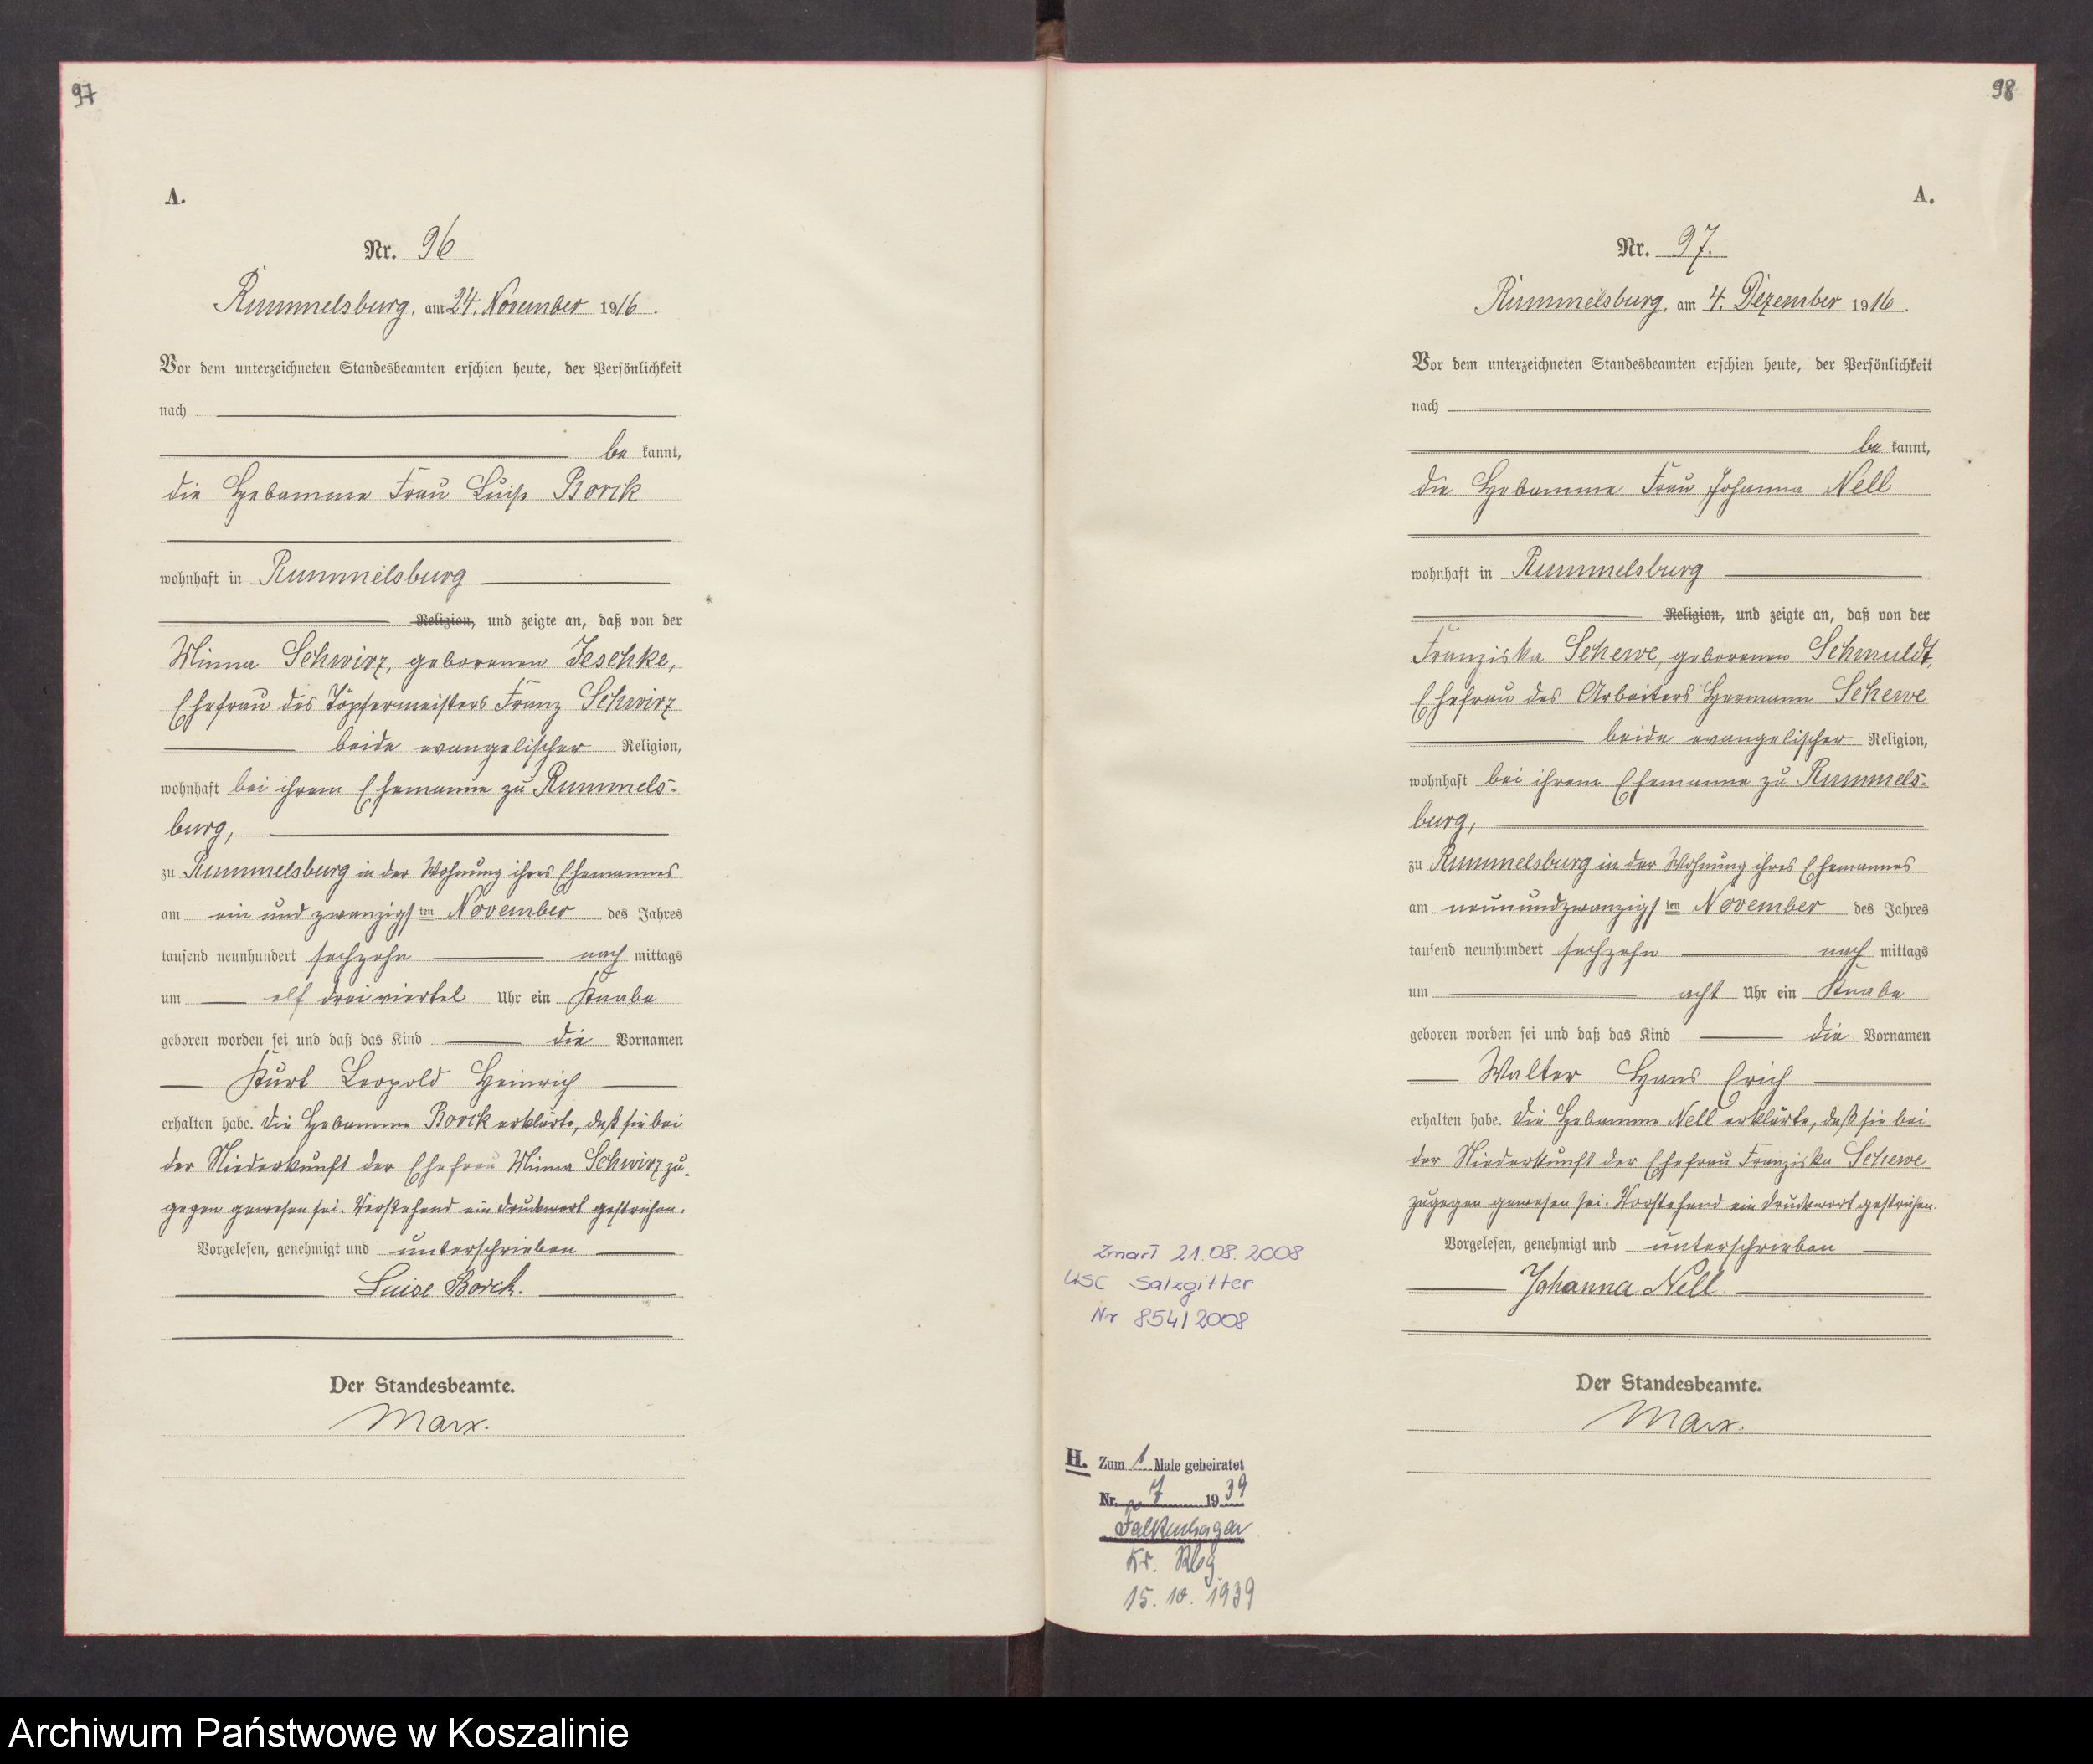 97
A.
Nr. 96
Rummelsburg, am 24. November 1916.
Vor dem unterzeichneten Standesbeamten erschien heute, der Persönlichkeit
nach
be kannt,
die Hebamme Frau Luise Borck
wohnhaft in Rummelsburg
Religion, und zeigte an, daß von der
Minna Schwirz, geborenen Jeschke,
Ehefrau des Töpfermeisters Franz Schwirz
beide evangelischer Religion,
wohnhaft bei ihrem Ehemanne zu Rummels-
burg,
zu Rummelsburg in der Wohnung ihres Ehemannes
am ein und zwanzigsten November des Jahres
tausend neunhundert sechzehn nach mittags
um elf dreiviertel Uhr ein Knabe
geboren worden sei und daß das Kind die Vornamen
Kurt Leopold Heinrich
erhalten habe. Die Hebamme Borck erklärte, daß sie bei
der Niederkunft der Ehefrau Minna Schwirz zu-
gegen gewesen sei. Vorstehend ein Druckwort gestrichen.
Vorgelesen, genehmigt und unterschrieben
Luise Borck.
Der Standesbeamte.
Marx.
98
A.
Nr. 97.
Rummelsburg, am 4. Dezember 1916.
Vor dem unterzeichneten Standesbeamten erschien heute, der Persönlichkeit
nach
be kannt,
die Hebamme Frau Johanna Nell
wohnhaft in Rummelsburg
Religion, und zeigte an, daß von der
Franziska Schewe, geborenen Schmuldt,
Ehefrau des Arbeiters Hermann Schewe
beide evangelischer Religion,
wohnhaft bei ihrem Ehemanne zu Rummels-
burg,
zu Rummelsburg in der Wohnung ihres Ehemannes
am neunundzwanzigsten November des Jahres
tausend neunhundert sechzehn nach mittags
um acht Uhr ein Knabe
geboren worden sei und daß das Kind die Vornamen
Walter Hans Erich
erhalten habe. Die Hebamme Nell erklärte, daß sie bei
der Niederkunft der Ehefrau Franziska Schewe
zugegen gewesen sei. Vorstehend ein Druckwort gestrichen.
Vorgelesen, genehmigt und unterschrieben
Johanna Nell.
Der Standesbeamte.
Marx.
Zmarł 21.08.2008
USC Salzgitter
Nr 854/2008
H. Zum 1 Male geheiratet
Nr. 7 1939
Falkenhagen
Kr. Rbg
15. 10. 1939
Archiwum Państwowe w Koszalinie